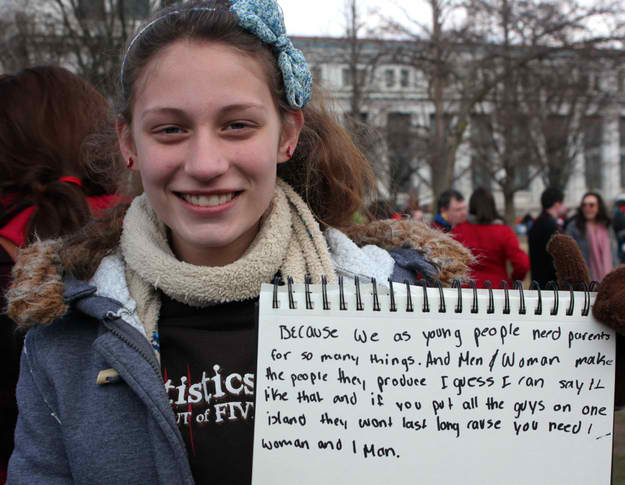 Because we as young people need parents
for so many things. And Men & Woman make
the people they produce I guess I can say it
like that and if you put all the guys on one
island they wont last long cause you need 1
woman and 1 Man.
tistics
UT of FIV